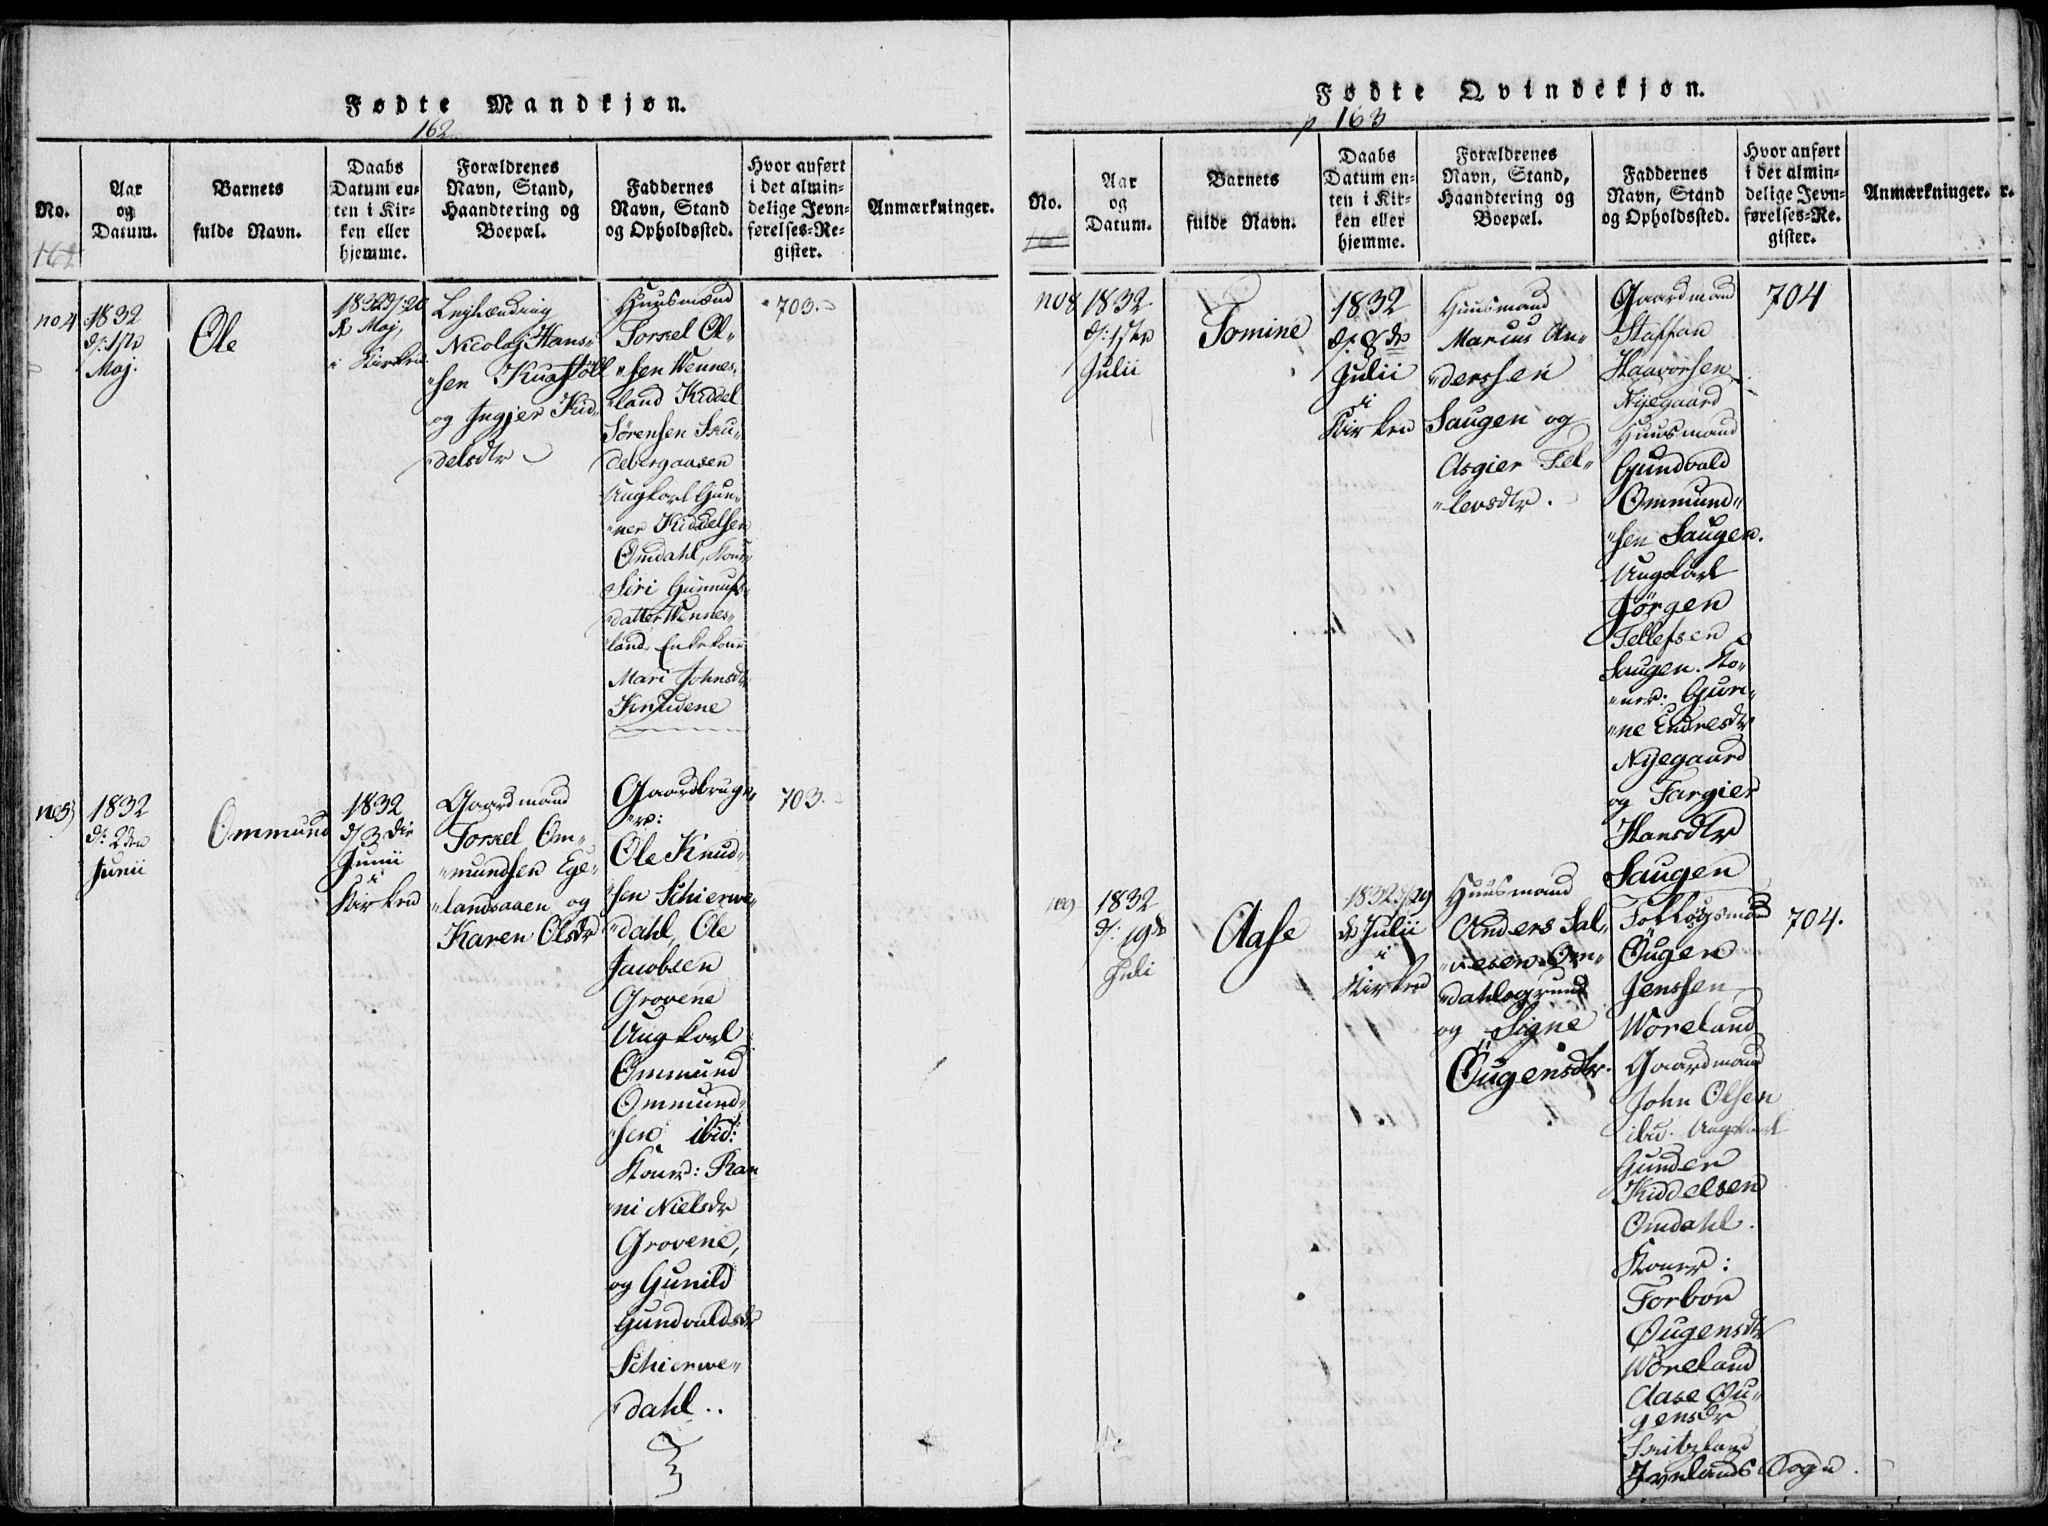 Fødte Mandkjøn.
162
No.
Aar
og
Datum.
Barnets
fulde Navn.
Daabs
Datum en-
ten i Kir-
ken eller
hjemme.
Forældrenes
Navn, Stand,
Haandtering og
Boepæl.
Faddernes
Navn, Stand
og Opholdssted.
Hvor anført
i det almin-
delige Jevn-
førelses-Re-
gister.
Anmærkninger.
no 4
1832
d: 1ste
Maj.
Ole
Maj,
i Kirken
Leylænding
Nicolaj Hans-
"sen
og Ingjer Kid-
delsdtr
Huusmænd
Torkel Ol-
"sen Wennes-
land Kiddel
Sörensen Sku-
debergaasen
Ungkarl Gun-
"ner Kiddelsen
Omdahl, Kon:
Siri Gunnufs-
datter Wennes-
land, Enkekone
Mari Johnsdtr
Knudene
703.
no 5)
1832
d: 2den
Junii
Ommund
1832
d: 3die
Junii
i
Kirken
Gaardmand
Torkel Om-
"mundsen Ege-
"landsaaen og
Karen Olsdr
Gaardbruge-
"re:
Ole Knud-
"sen Schierwe-
"dahl, Ole
Jacobsen
Grovene
Ungkarl
Ommund
Ommund-
"sen ibid:
Koner: Ran-
"ni Nielsdr
Grovene,
og Gunild
Gundvaldsdr
Schierwe-
"dahl..
703.
Fødte Qvindekjøn.
p 163
No.
Aar
og
Datum.
Barnets
fulde Navn.
Daabs
Datum en-
ten i Kir-
ken eller
hjemme.
Forældrenes
Navn, Stand,
Haandtering og
Boepæl.
Faddernes
Navn, Stand
og Opholdssted.
Hvor anført
i det almin-
delige Jevn-
førelses-Re-
gister.
Anmærkninger.
r.
no 8
1832
d: 1ste
Julii
Tomine
1832
d: 8de
Julii
i
Kirken
Huusmand
Marcus An-
"derssen
Saugen og
Asgier Tel-
"levsdtr.
Gaardmand
Staffan
Haavorsen
Nyegaard
Huusmand
Gundvald
Ommund-
"sen Saugen.
Ungkarl
Jörgen
Tellefsen
Saugen. Ko-
"ner: Gun-
"ne Endresdtr
Nyegaard
og Targier
Hansdtr
Saugen
704
no 9
1832
d: 19de
Juli
Aase
1832 d: 29
de Julii
i
Kirken
Huusmand
Anders Sal-
"vesen Om-
"dahlsgrund
og Signe
Öugensdtr.
Forlogsmand
Öugen
Jenssen
Woreland
Gaardmand
John Olsen
ibid. Ungkarl
Gunder
Kiddelsen
Omdahl.
Koner:
Torbor
Öugensdtr
Woreland
Aase Öu-
gensdr
Fritzland
Ivelands Sogn.
704.